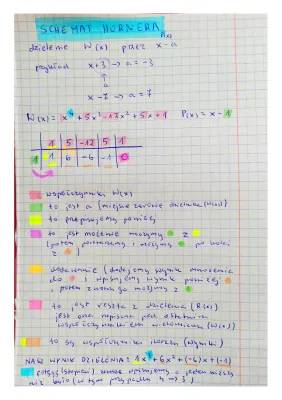 SCHEMAT HORNERA
P(x)
dzielenie W(x) przez x-a
przykład x+3 → a=-3
x-7 → a=7
W(x)= x⁴+5x³-12x²+5x+1 P(x)= x-1
1 5 -12 5 1
1 1 6 -6 -1 0
współczynniki W(x)
to jest a (miejsce zerowe dzielnika)
to przepisujemy poniżej
to jest mnożenie mnożymy z
(potem powtarzamy i mnożymy po kolei
z )
dodawanie (dodajemy wynik mnożenia
do i wpisujemy wynik poniżej
potem znowu go mnożymy z
to jest reszta z dzielenia (R(x))
jest ona napisana pod ostatnim
współczynnikiem wielomianu (W(x))
to są współczynniki ilorazu (wyniki)
NASZ WYNIK DZIELENIA: 1x³+6x²+(-6)x+(-1)
potęgi (stopień) zawsze wpisujemy o jeden niższą
niż było (w tym przypadku 4 → 3)